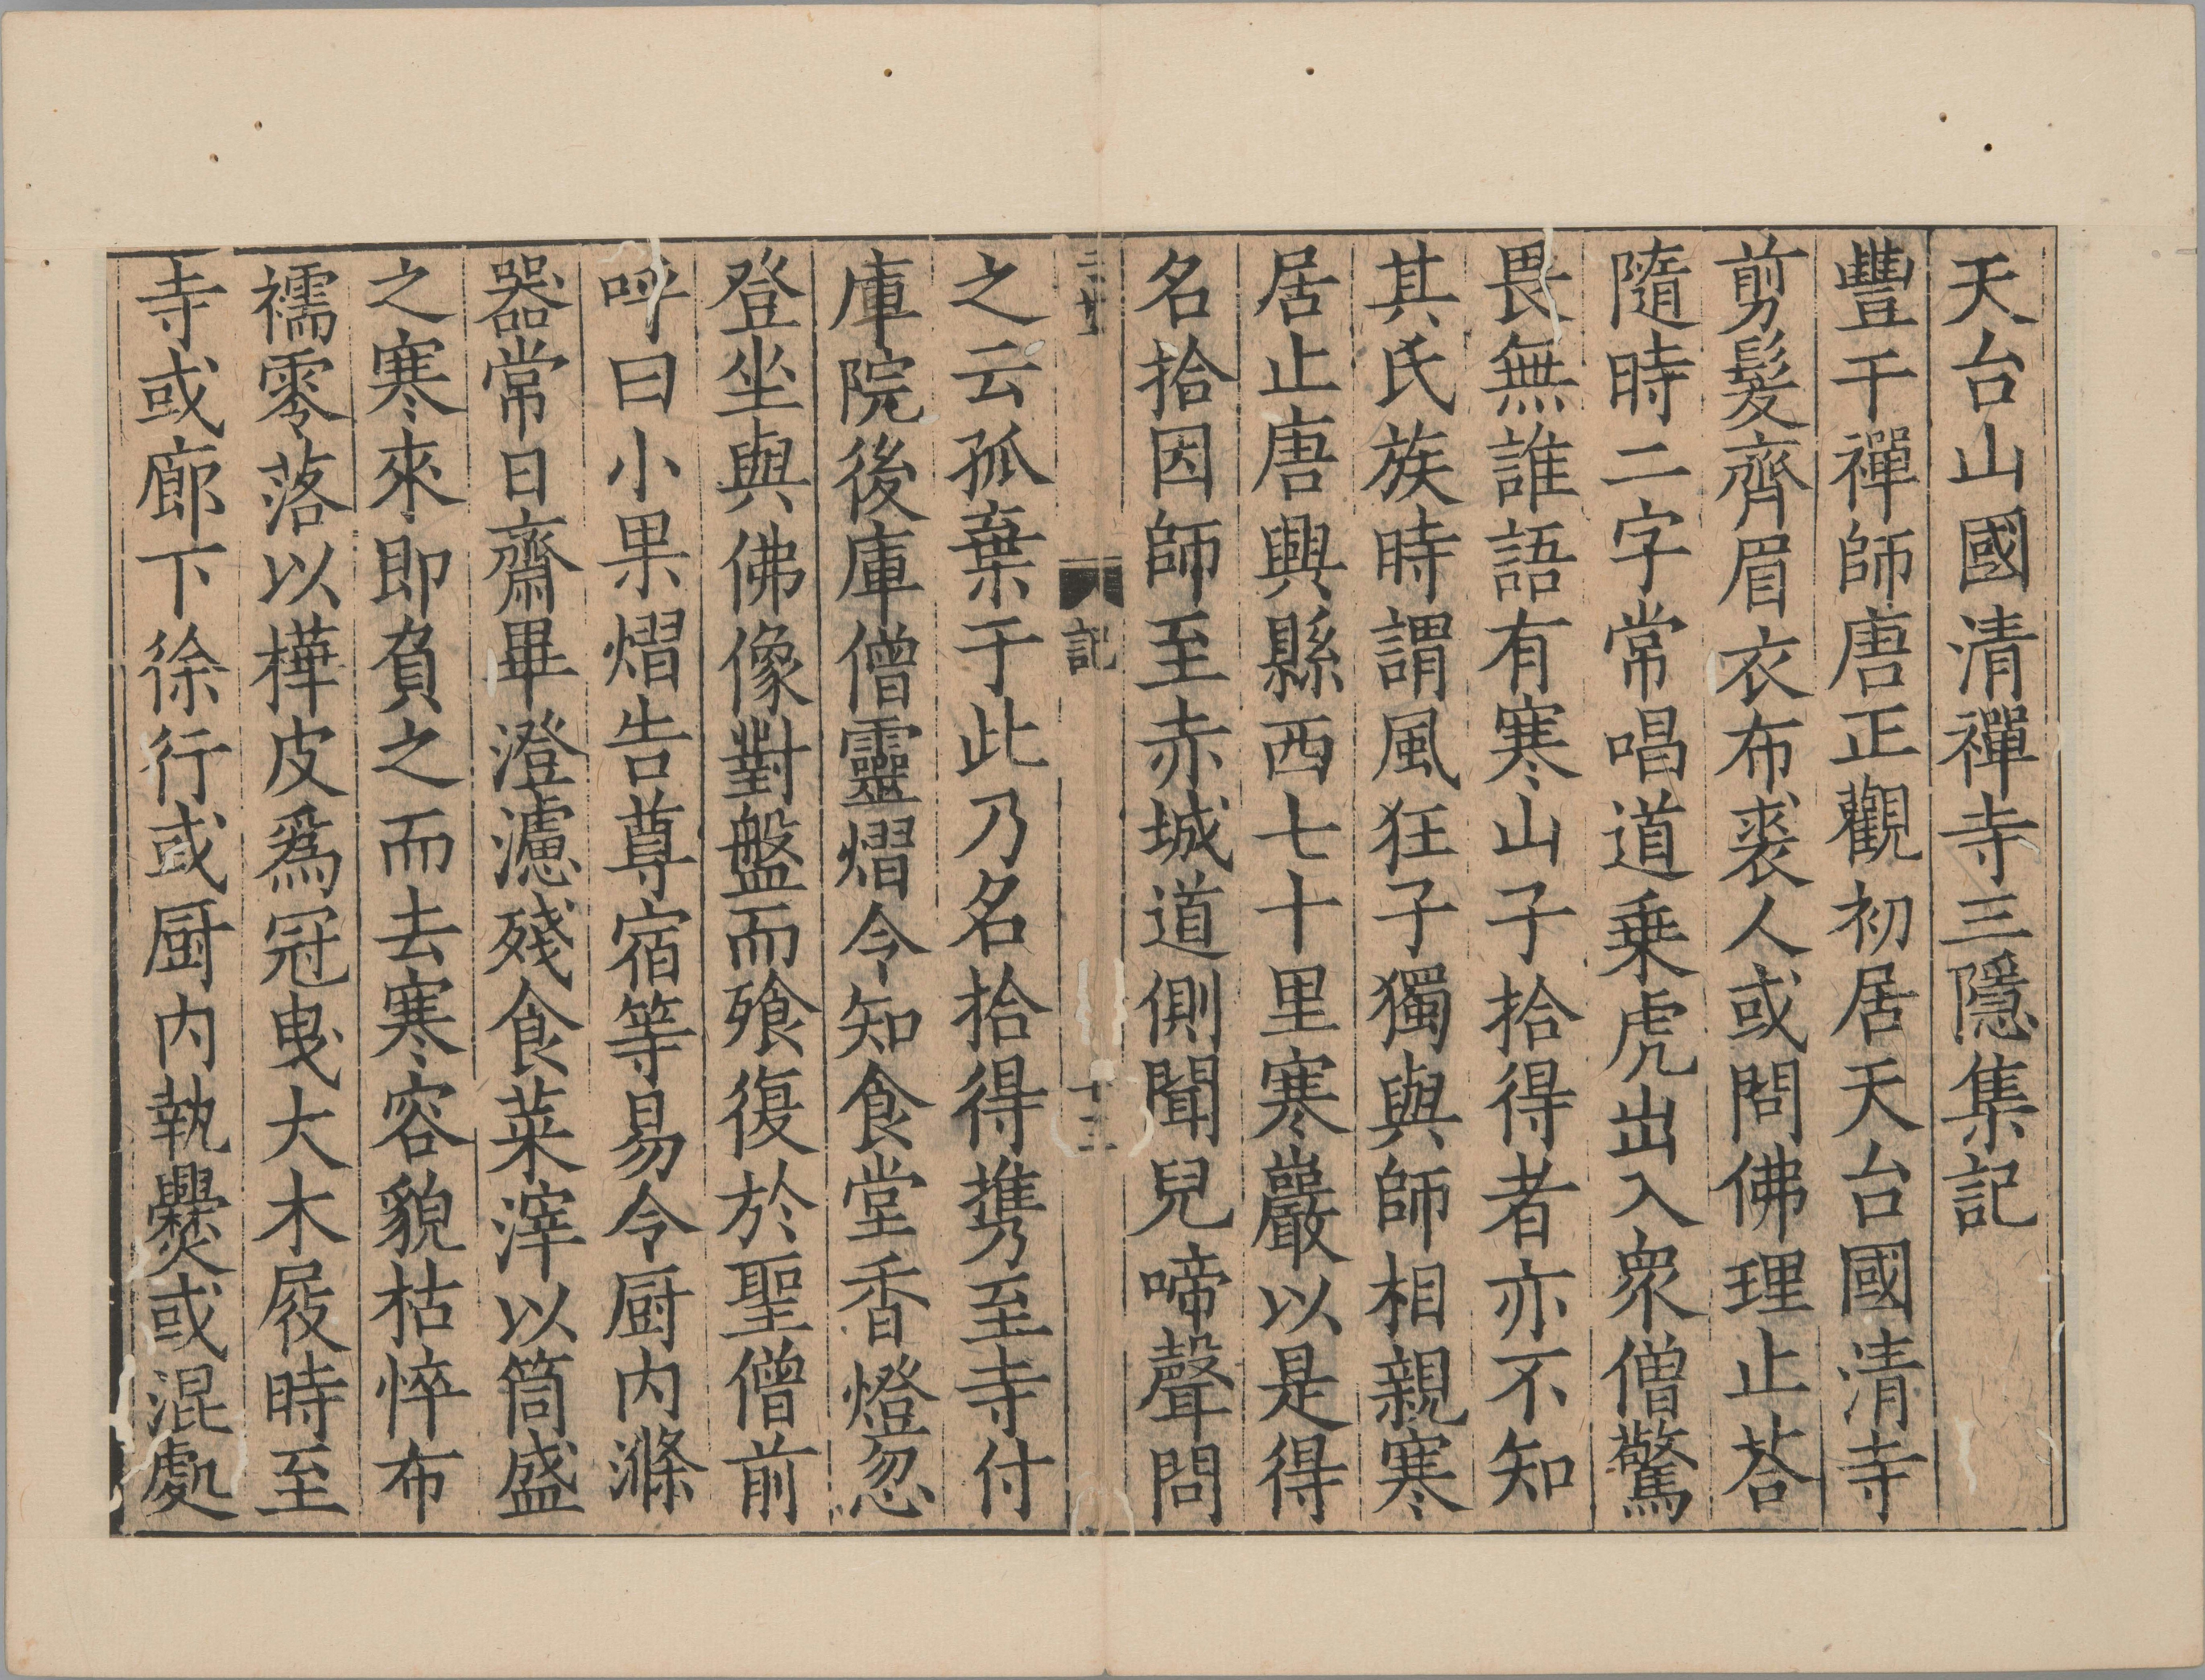 天台山國清禪寺三隱集記
豐干禪師唐正觀初居天台國清寺
剪髮齊眉衣布裘人或問佛理止荅
隨時二字常唱道乗虎出入衆僧驚
畏無誰語有寒山子拾得者亦不知
其氏族時謂風狂子獨與師相親寒
居止唐興縣西七十里寒巖以是得
名拾因師至赤城道側聞兒啼聲問
記
十三
之云孤棄于此乃名拾得携至寺付
庫院後庫僧靈熠令知食堂香燈忽
登坐與佛像對盤而飱復於聖僧前
呼曰小果熠告尊宿等易令厨内滌
器常日齋畢澄濾殘食菜滓以筒盛
之寒來即負之而去寒容貌枯悴布
襦零落以樺皮爲冠曳大木屐時至
寺或廊下徐行或厨内執爨或混處